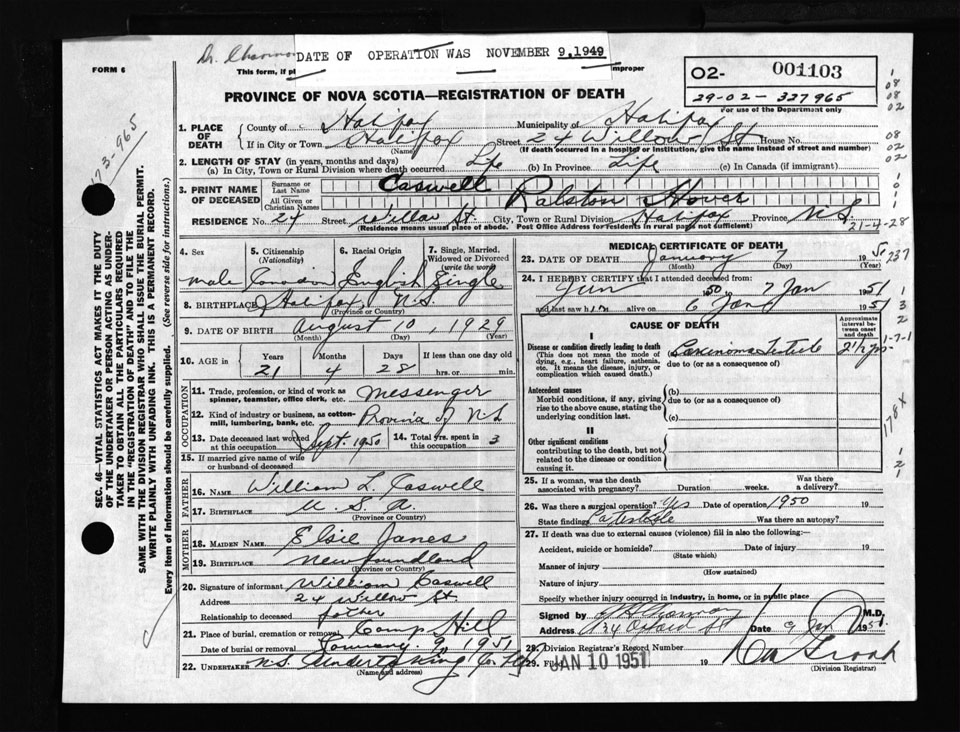 Dr.
DATE OF OPERATION WAS NOVEMBER 9.1949
FORM 6
This form, if pl
mproper
O2- 001103
29-02-327965
For use of the Department only
PROVINCE OF NOVA SCOTIA—REGISTRATION OF DEATH
1. PLACE OF DEATH
County of Halifax Municipality of Halifax
If in City or Town Halifax Street 24 Willow St House No.
(Name) (If death occurred in a hospital or institution, give the name instead of street and number)
2. LENGTH OF STAY (in years, months and days)
(a) In City, Town or Rural Division where death occurred Life (b) In Province Life (c) In Canada (if immigrant)
3. PRINT NAME OF DECEASED
Surname or Last Name Caswell
All Given or Christian Names Ralston Hover
RESIDENCE No. 24 Street Willow St. City, Town or Rural Division Halifax Province N.S.
(Residence means usual place of abode. Post Office Address for residents in rural parts not sufficient)
21-4-28
4. Sex
male
5. Citizenship (Nationality)
Canadian
6. Racial Origin
English
7. Single, Married, Widowed or Divorced (write the word)
Single
8. BIRTHPLACE Halifax N.S.
(Province or Country)
9. DATE OF BIRTH August 10, 1929
(Month) (Day) (Year)
10. AGE in Years Months Days If less than one day old
21 4 28 hrs. or min.
OCCUPATION
11. Trade, profession, or kind of work as spinner, teamster, office clerk, etc. messenger
12. Kind of industry or business, as cotton-mill, lumbering, bank, etc. of N.S.
13. Date deceased last worked at this occupation Sept. 1950 14. Total yrs. spent in this occupation 3
15. If married give name of wife or husband of deceased
FATHER
16. NAME William L. Caswell
17. BIRTHPLACE U.S.A.
(Province or Country)
MOTHER
18. MAIDEN NAME Elsie Janes
19. BIRTHPLACE Newfoundland
(Province or Country)
20. Signature of informant William Caswell
Address 24 Willow St.
Relationship to deceased father
21. Place of burial, cremation or removal Camp Hill
Date of burial or removal January 9, 1951
22. UNDERTAKER N.S. Undertaking Co.
(Name and address)
MEDICAL CERTIFICATE OF DEATH
23. DATE OF DEATH January 7 19
(Month) (Day) (Year)
237
24. I HEREBY CERTIFY that I attended deceased from:
Jun 1950 to 7 Jan 1951
and last saw him alive on 6 Jan 1951
CAUSE OF DEATH
Approximate interval between onset and death
I
Disease or condition directly leading to death
(This does not mean the mode of dying, e.g., heart failure, asthenia, etc. It means the disease, injury, or complication which caused death.)
(a) Carcinoma Testicle 2½ yrs
due to (or as a consequence of)
Antecedent causes
Morbid conditions, if any, giving rise to the above cause, stating the underlying condition last.
(b)
due to (or as a consequence of)
(c)
II
Other significant conditions
contributing to the death, but not related to the disease or condition causing it.
1-7-1
178X
25. If a woman, was the death associated with pregnancy? Duration weeks. Was there a delivery?
26. Was there a surgical operation? Yes Date of operation 1950
State findings Was there an autopsy?
27. If death was due to external causes (violence) fill in also the following:
Accident, suicide or homicide? Date of injury 19
(State which)
Manner of injury
(How sustained)
Nature of injury
Specify whether injury occurred in industry, in home, or in public place
Signed by M.D.
Address 134 Oxford St Date 9 Jan 1951
28. Division Registrar's Record Number
29. Filed JAN 10 1951 19
(Division Registrar)
73-965
SEC. 46—VITAL STATISTICS ACT MAKES IT THE DUTY
OF THE UNDERTAKER OR PERSON ACTING AS UNDER-
TAKER TO OBTAIN ALL THE PARTICULARS REQUIRED
IN THE "REGISTRATION OF DEATH" AND TO FILE THE
SAME WITH THE DIVISION REGISTRAR WHO SHALL ISSUE THE BURIAL PERMIT.
WRITE PLAINLY WITH UNFADING INK. THIS IS A PERMANENT RECORD.
Every item of information should be carefully supplied. (See reverse side for instructions.)